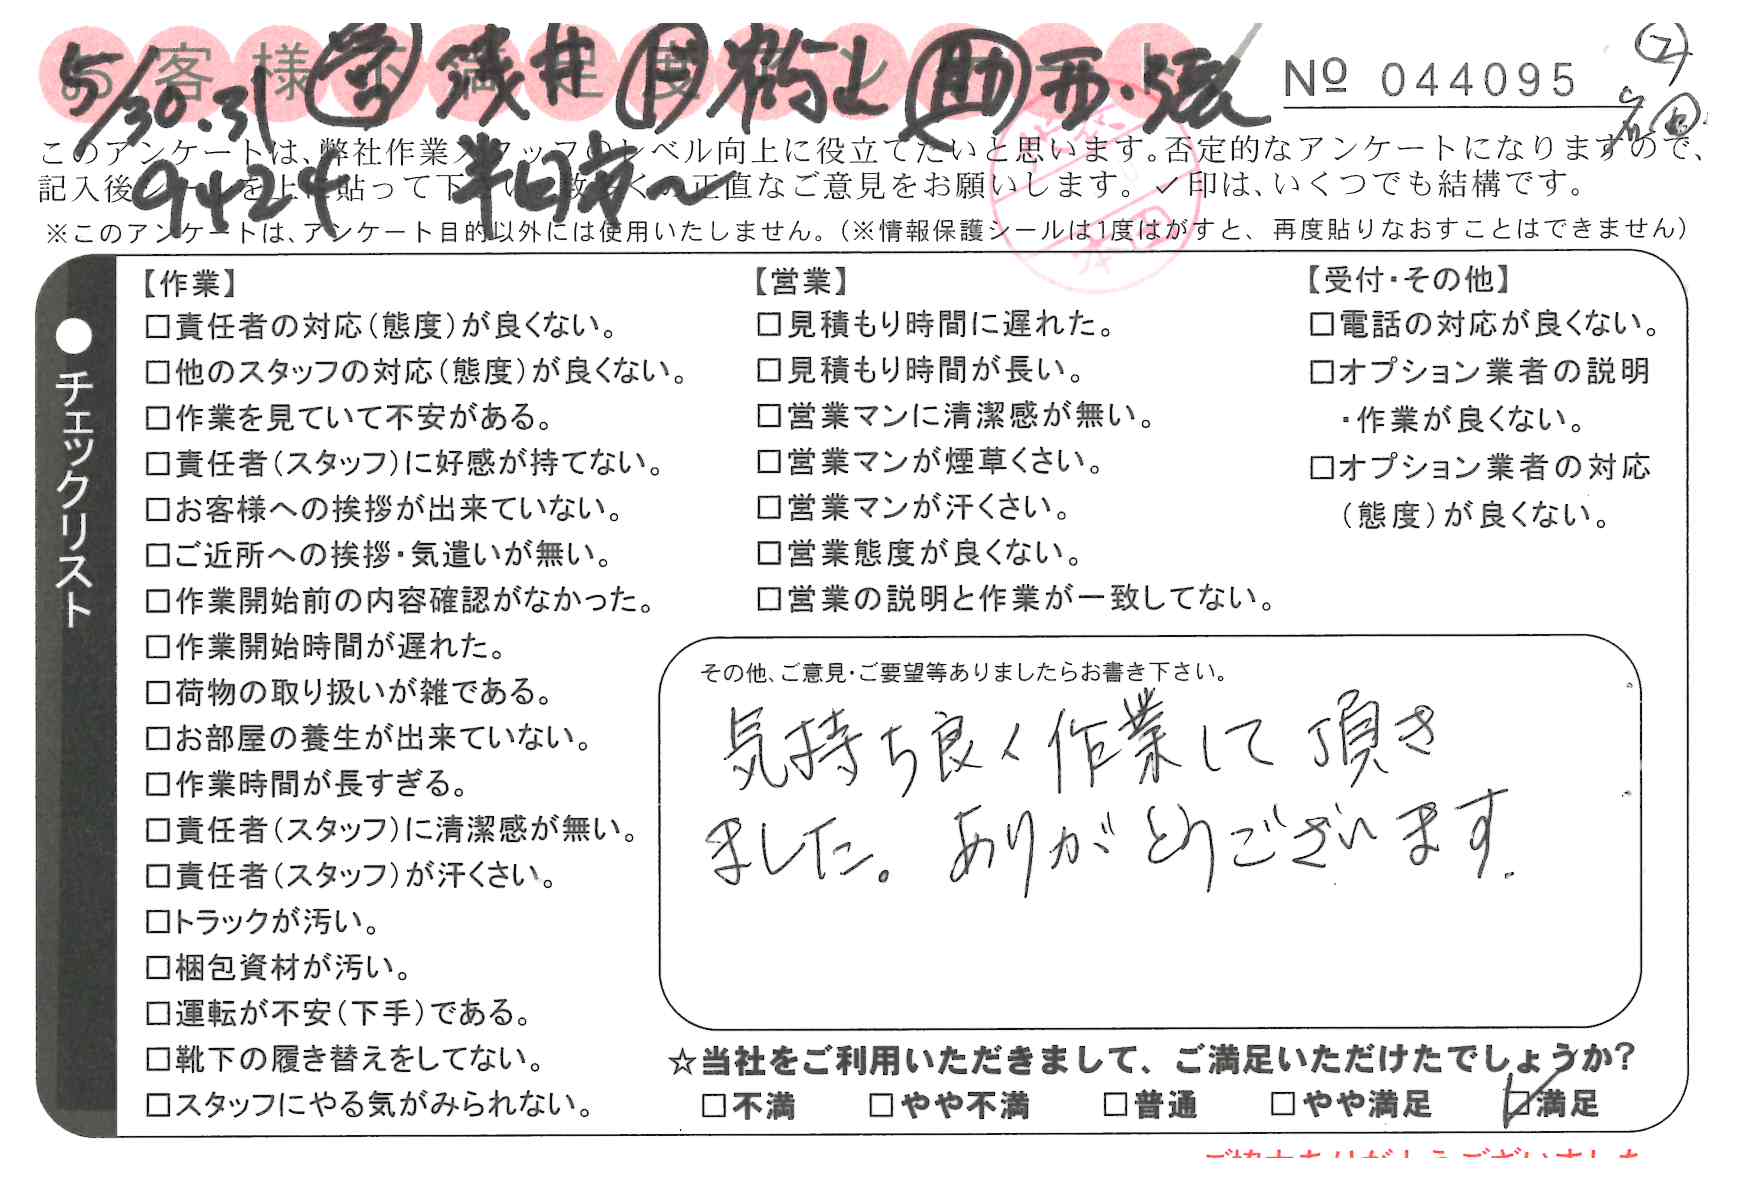 お客様不満足度アンケート
5/30.31 営 浅井 助
9424 半田市〜
№ 044095
このアンケートは、弊社作業スタッフのレベル向上に役立てたいと思います。否定的なアンケートになりますので、
記入後シールを上に貼って下さい。数多くの正直なご意見をお願いします。✓印は、いくつでも結構です。
※このアンケートは、アンケート目的以外には使用いたしません。(※情報保護シールは1度はがすと、再度貼りなおすことはできません)
●チェックリスト
【作業】
□責任者の対応(態度)が良くない。
□他のスタッフの対応(態度)が良くない。
□作業を見ていて不安がある。
□責任者(スタッフ)に好感が持てない。
□お客様への挨拶が出来ていない。
□ご近所への挨拶・気遣いが無い。
□作業開始前の内容確認がなかった。
□作業開始時間が遅れた。
□荷物の取り扱いが雑である。
□お部屋の養生が出来ていない。
□作業時間が長すぎる。
□責任者(スタッフ)に清潔感が無い。
□責任者(スタッフ)が汗くさい。
□トラックが汚い。
□梱包資材が汚い。
□運転が不安(下手)である。
□靴下の履き替えをしてない。
□スタッフにやる気がみられない。
【営業】
□見積もり時間に遅れた。
□見積もり時間が長い。
□営業マンに清潔感が無い。
□営業マンが煙草くさい。
□営業マンが汗くさい。
□営業態度が良くない。
□営業の説明と作業が一致してない。
【受付・その他】
□電話の対応が良くない。
□オプション業者の説明
・作業が良くない。
□オプション業者の対応
(態度)が良くない。
その他、ご意見・ご要望等ありましたらお書き下さい。
気持ち良く作業して頂き
ました。ありがとうございます.
☆当社をご利用いただきまして、ご満足いただけたでしょうか?
□不満 □やや不満 □普通 □やや満足 ☑満足
ご協力ありがとうございました